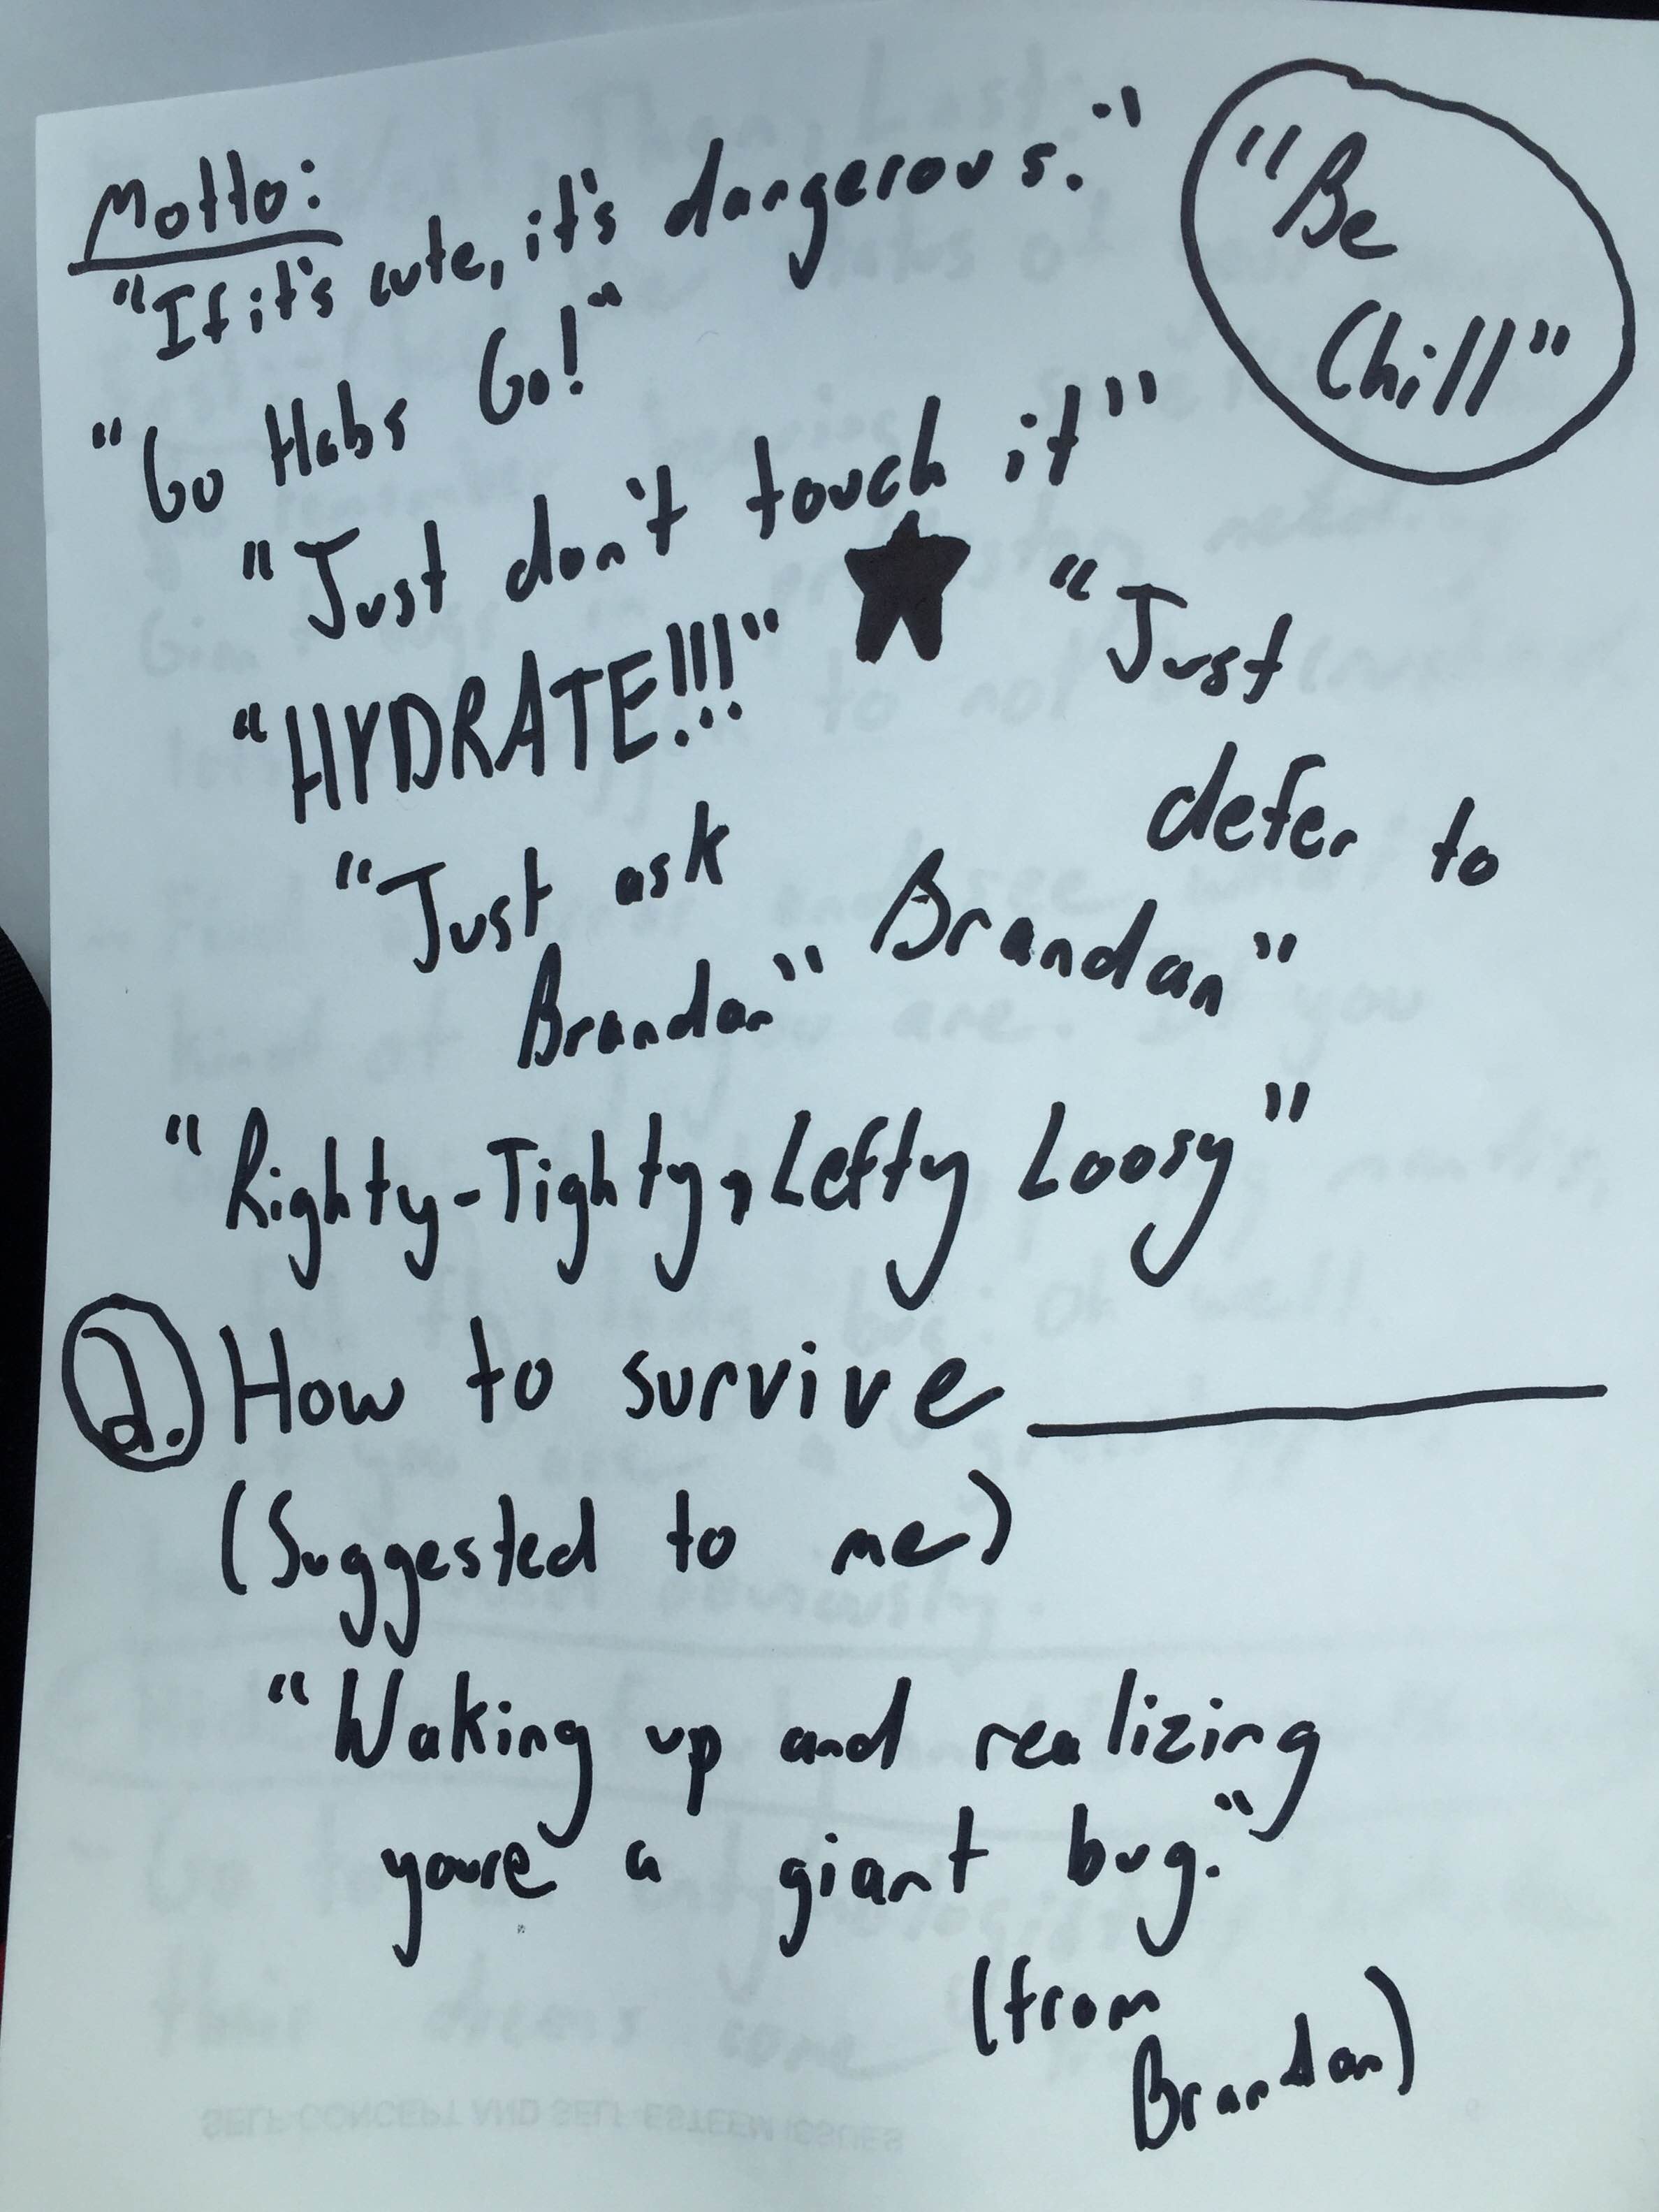 Motto:
"If it's cute, it's dangerous."
"Be
Chill"
"Go Habs Go!"
"Just don't touch it"
"HYDRATE!!!"
"Just
defer to
Brandan"
"Just ask
Brandan"
"Righty-Tighty, Lefty Loosy"
2. How to survive
(Suggested to me)
"Waking up and realizing
youre a giant bug."
(from
Brandan)
SELF CONCEPT AND SELF ESTEEM ISSUES